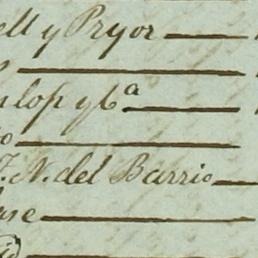 ell y Pryor
nlop y Cª
o
F. N. del Barrio
ase